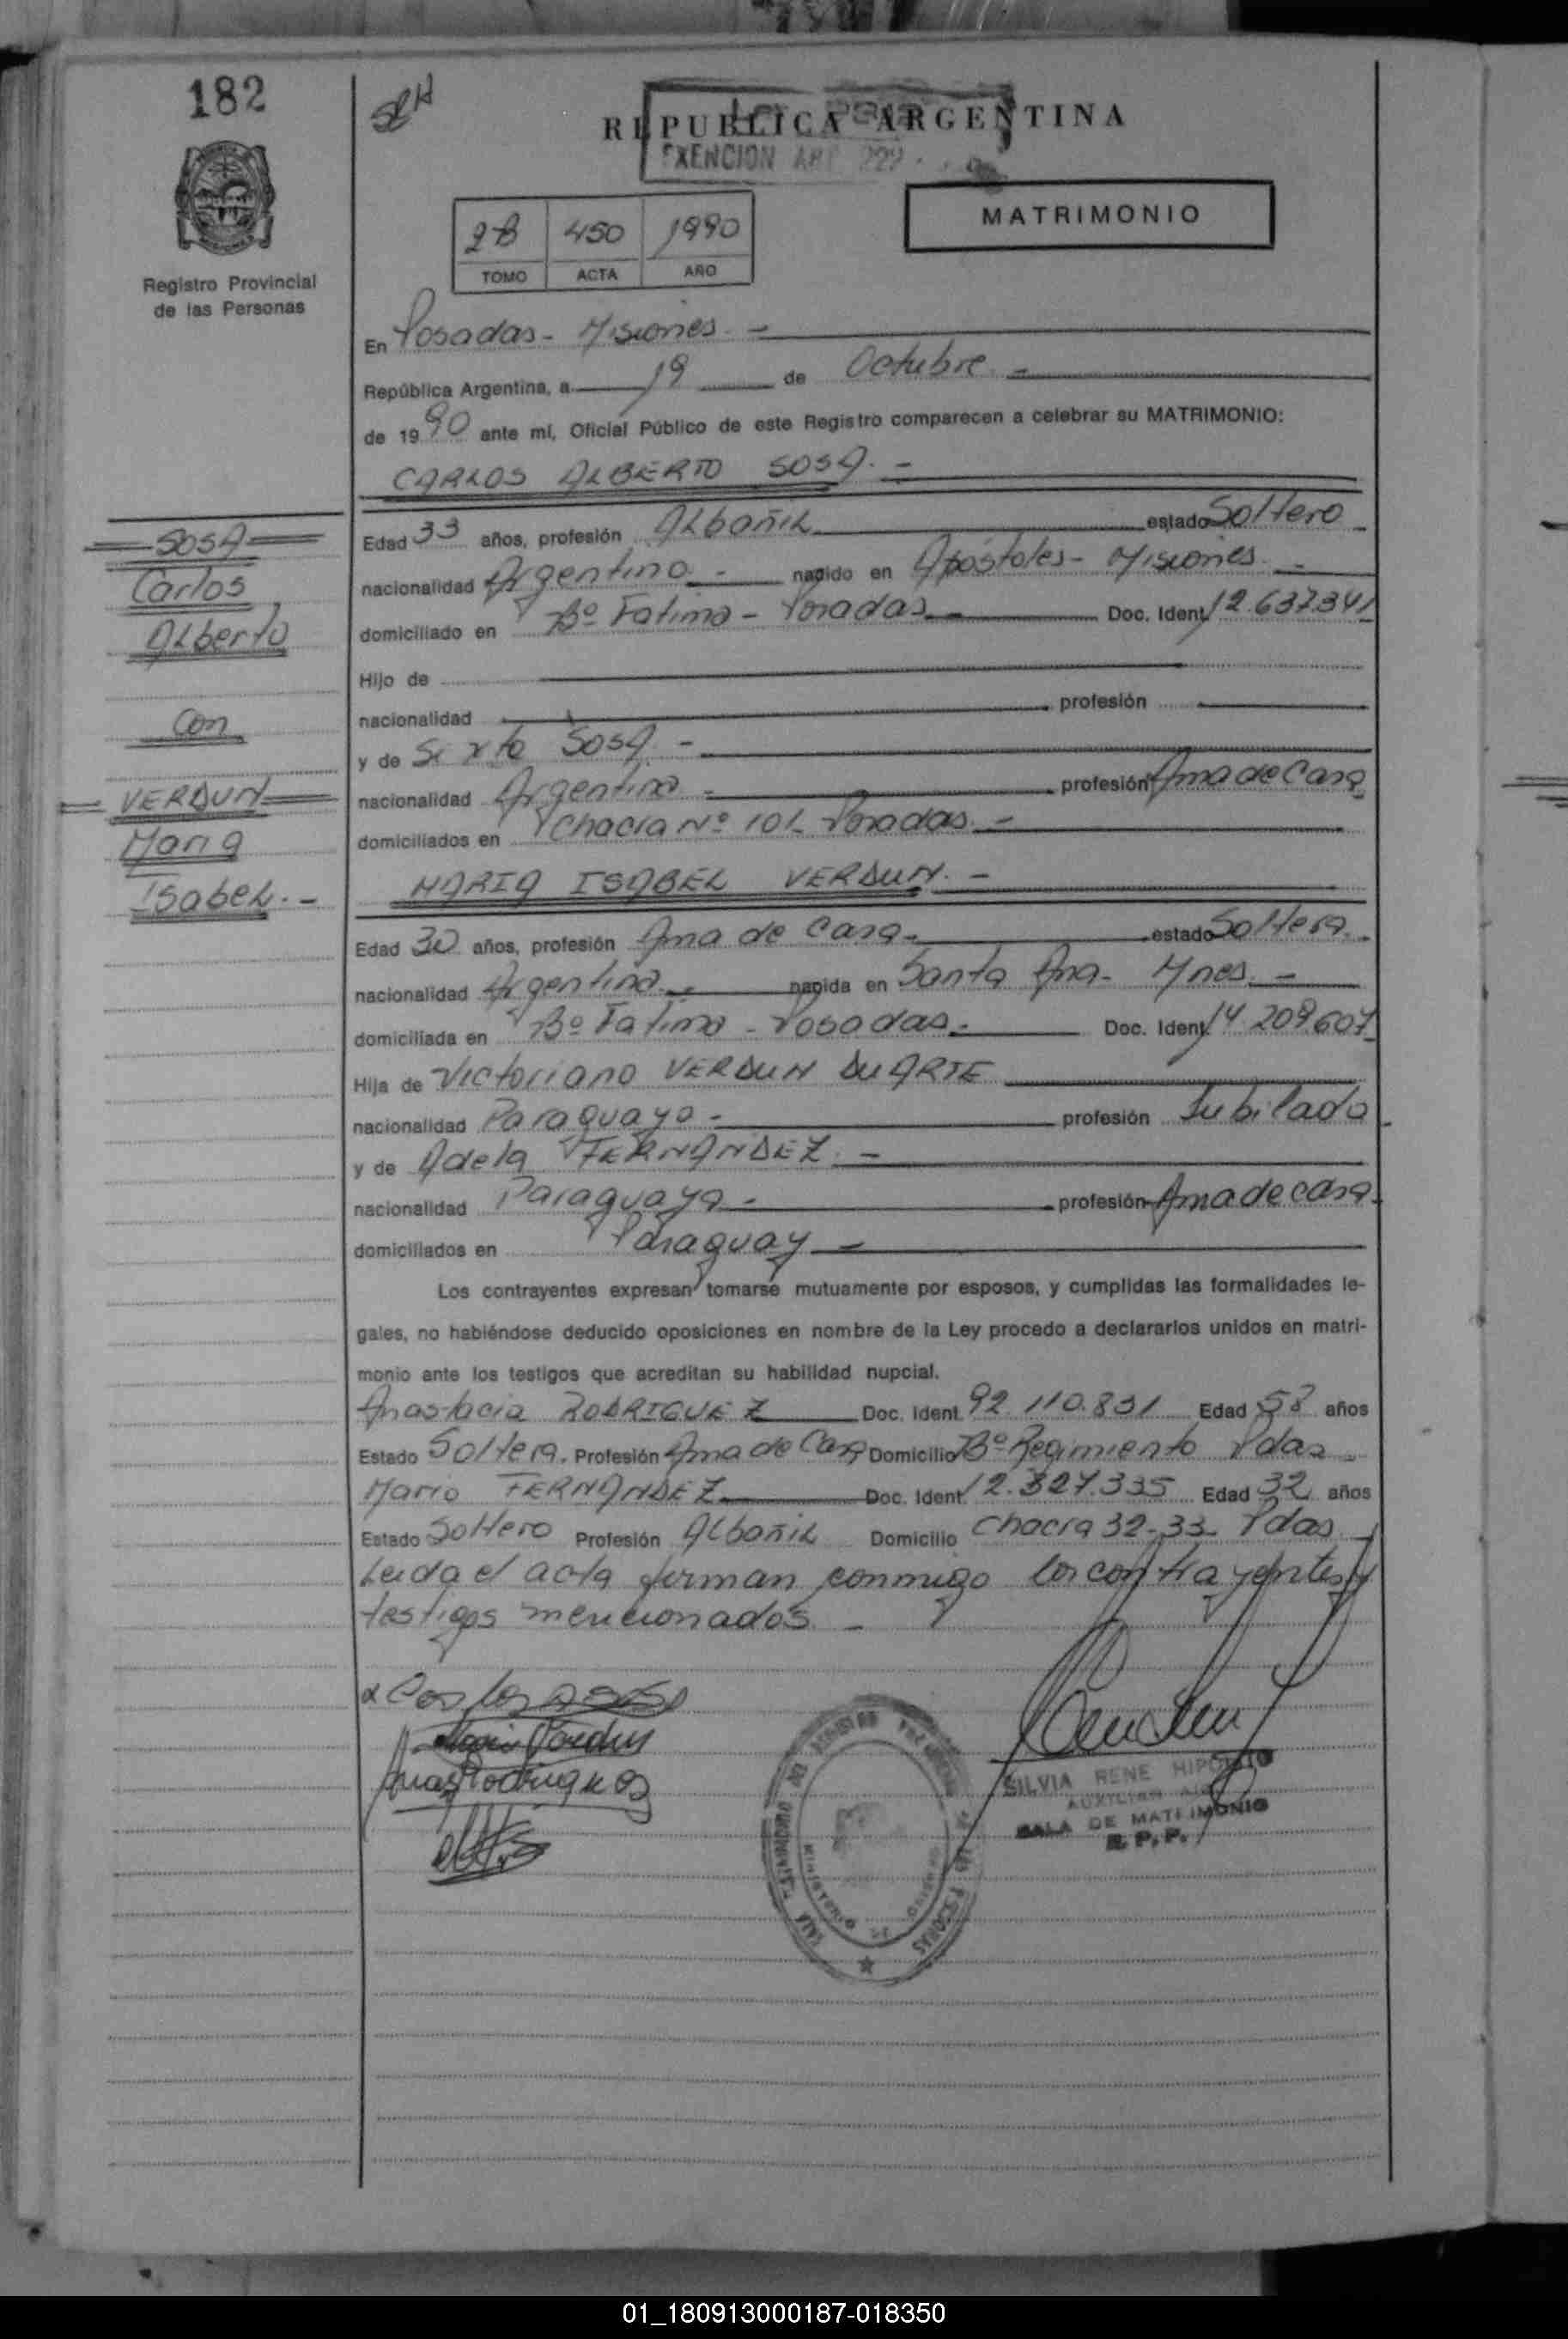 182
REPUBLICA ARGENTINA
EXENCION ART 229
MATRIMONIO
2B 450 1990
TOMO ACTA AÑO
Registro Provincial
de las Personas
En Posadas - Misiones. -
República Argentina, a 19 de Octubre. -
de 1990 ante mí, Oficial Público de este Registro comparecen a celebrar su MATRIMONIO:
CARLOS ALBERTO SOSA. -
SOSA
Carlos
Alberto
Con
VERDUN
Maria
Isabel. -
Edad 33 años, profesión Albañil estado Soltero
nacionalidad Argentino. - nacido en Apóstoles - Misiones. -
domiciliado en Bº Fatima - Posadas - Doc. Ident. 12.637.341
Hijo de
nacionalidad profesión
y de Sixta SOSA. -
nacionalidad Argentina - profesión Ama de Casa
domiciliados en Chacra Nº 101 - Posadas. -
MARIA ISABEL VERDUN. -
Edad 30 años, profesión Ama de Casa - estado Soltera.
nacionalidad Argentina. - nacida en Santa Ana - Mnes. -
domiciliada en Bº Fatima - Posadas - Doc. Ident. 14.209.607
Hija de Victoriano VERDUN DUARTE
nacionalidad Paraguayo - profesión Jubilado
y de Adela FERNANDEZ. -
nacionalidad Paraguaya - profesión Ama de casa -
domiciliados en Paraguay -
Los contrayentes expresan tomarse mutuamente por esposos, y cumplidas las formalidades le-
gales, no habiéndose deducido oposiciones en nombre de la Ley procedo a declararlos unidos en matri-
monio ante los testigos que acreditan su habilidad nupcial.
Anastacia RODRIGUEZ Doc. Ident. 92.110.831 Edad 58 años
Estado Soltera. Profesión Ama de Casa Domicilio Bº Regimiento Pdas -
Mario FERNANDEZ Doc. Ident. 12.327.335 Edad 32 años
Estado Soltero Profesión Albañil Domicilio Chacra 32-33 - Pdas
Leida el acta firman conmigo los contrayentes y
testigos mencionados. -
SILVIA RENE HIPOLITO
AUXILIAR
SALA DE MATRIMONIO
R. P. P.
01_180913000187-018350